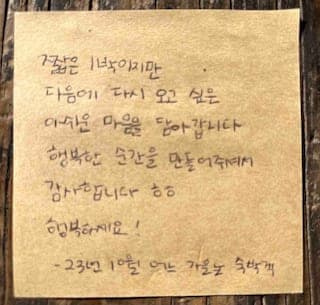 짧은 1박이지만
다음에 다시 오고 싶은
아쉬운 마음을 담아갑니다
행복한 순간을 만들어주셔서
감사합니다 ㅎㅎ
행복하세요!
-23년 10월 어느 가을날 숙박객